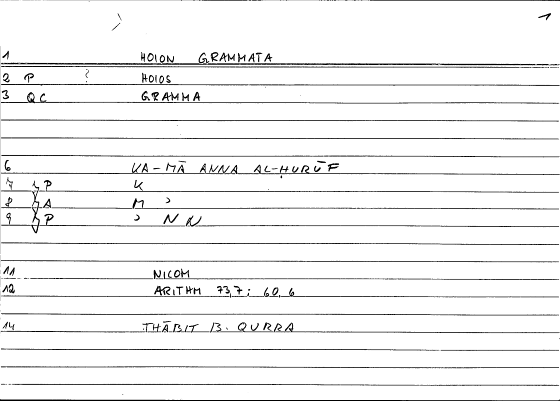 1
1 HOION GRAMMATA
2 P ? HOIOS
3 QC GRAMMA
6 KA-MĀ ANNA AL-ḤURŪF
7 P K
8 A M ʾ
9 P ʾ N N
11 NICOM
12 ARITHM 73,7; 60,6
14 THĀBIT B. QURRA